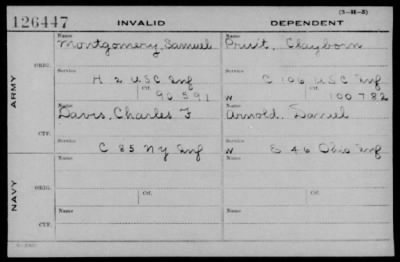 (3-M-5)
126447 INVALID DEPENDENT
Name Name
Montgomery, Samuel Pruit, Clayborn
ORIG.
Service Service
H 2 U.S.C Inf C 106 U.S.C Inf
Ctf. Ctf.
90 591 W 100 782
ARMY
Name Name
Davis, Charles F Arnold, Daniel
CTF.
Service Service
C 85 N.Y Inf W E 46 Ohio Inf
Name Name
ORIG.
Service Ctf. Service Ctf.
NAVY
Name Name
CTF.